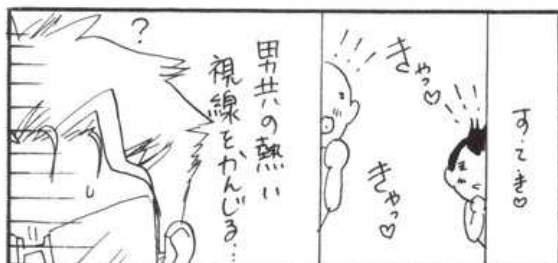 す・て・き♡
きゃっ♡
きゃっ♡
男共の熱い
視線をかんじる…
?